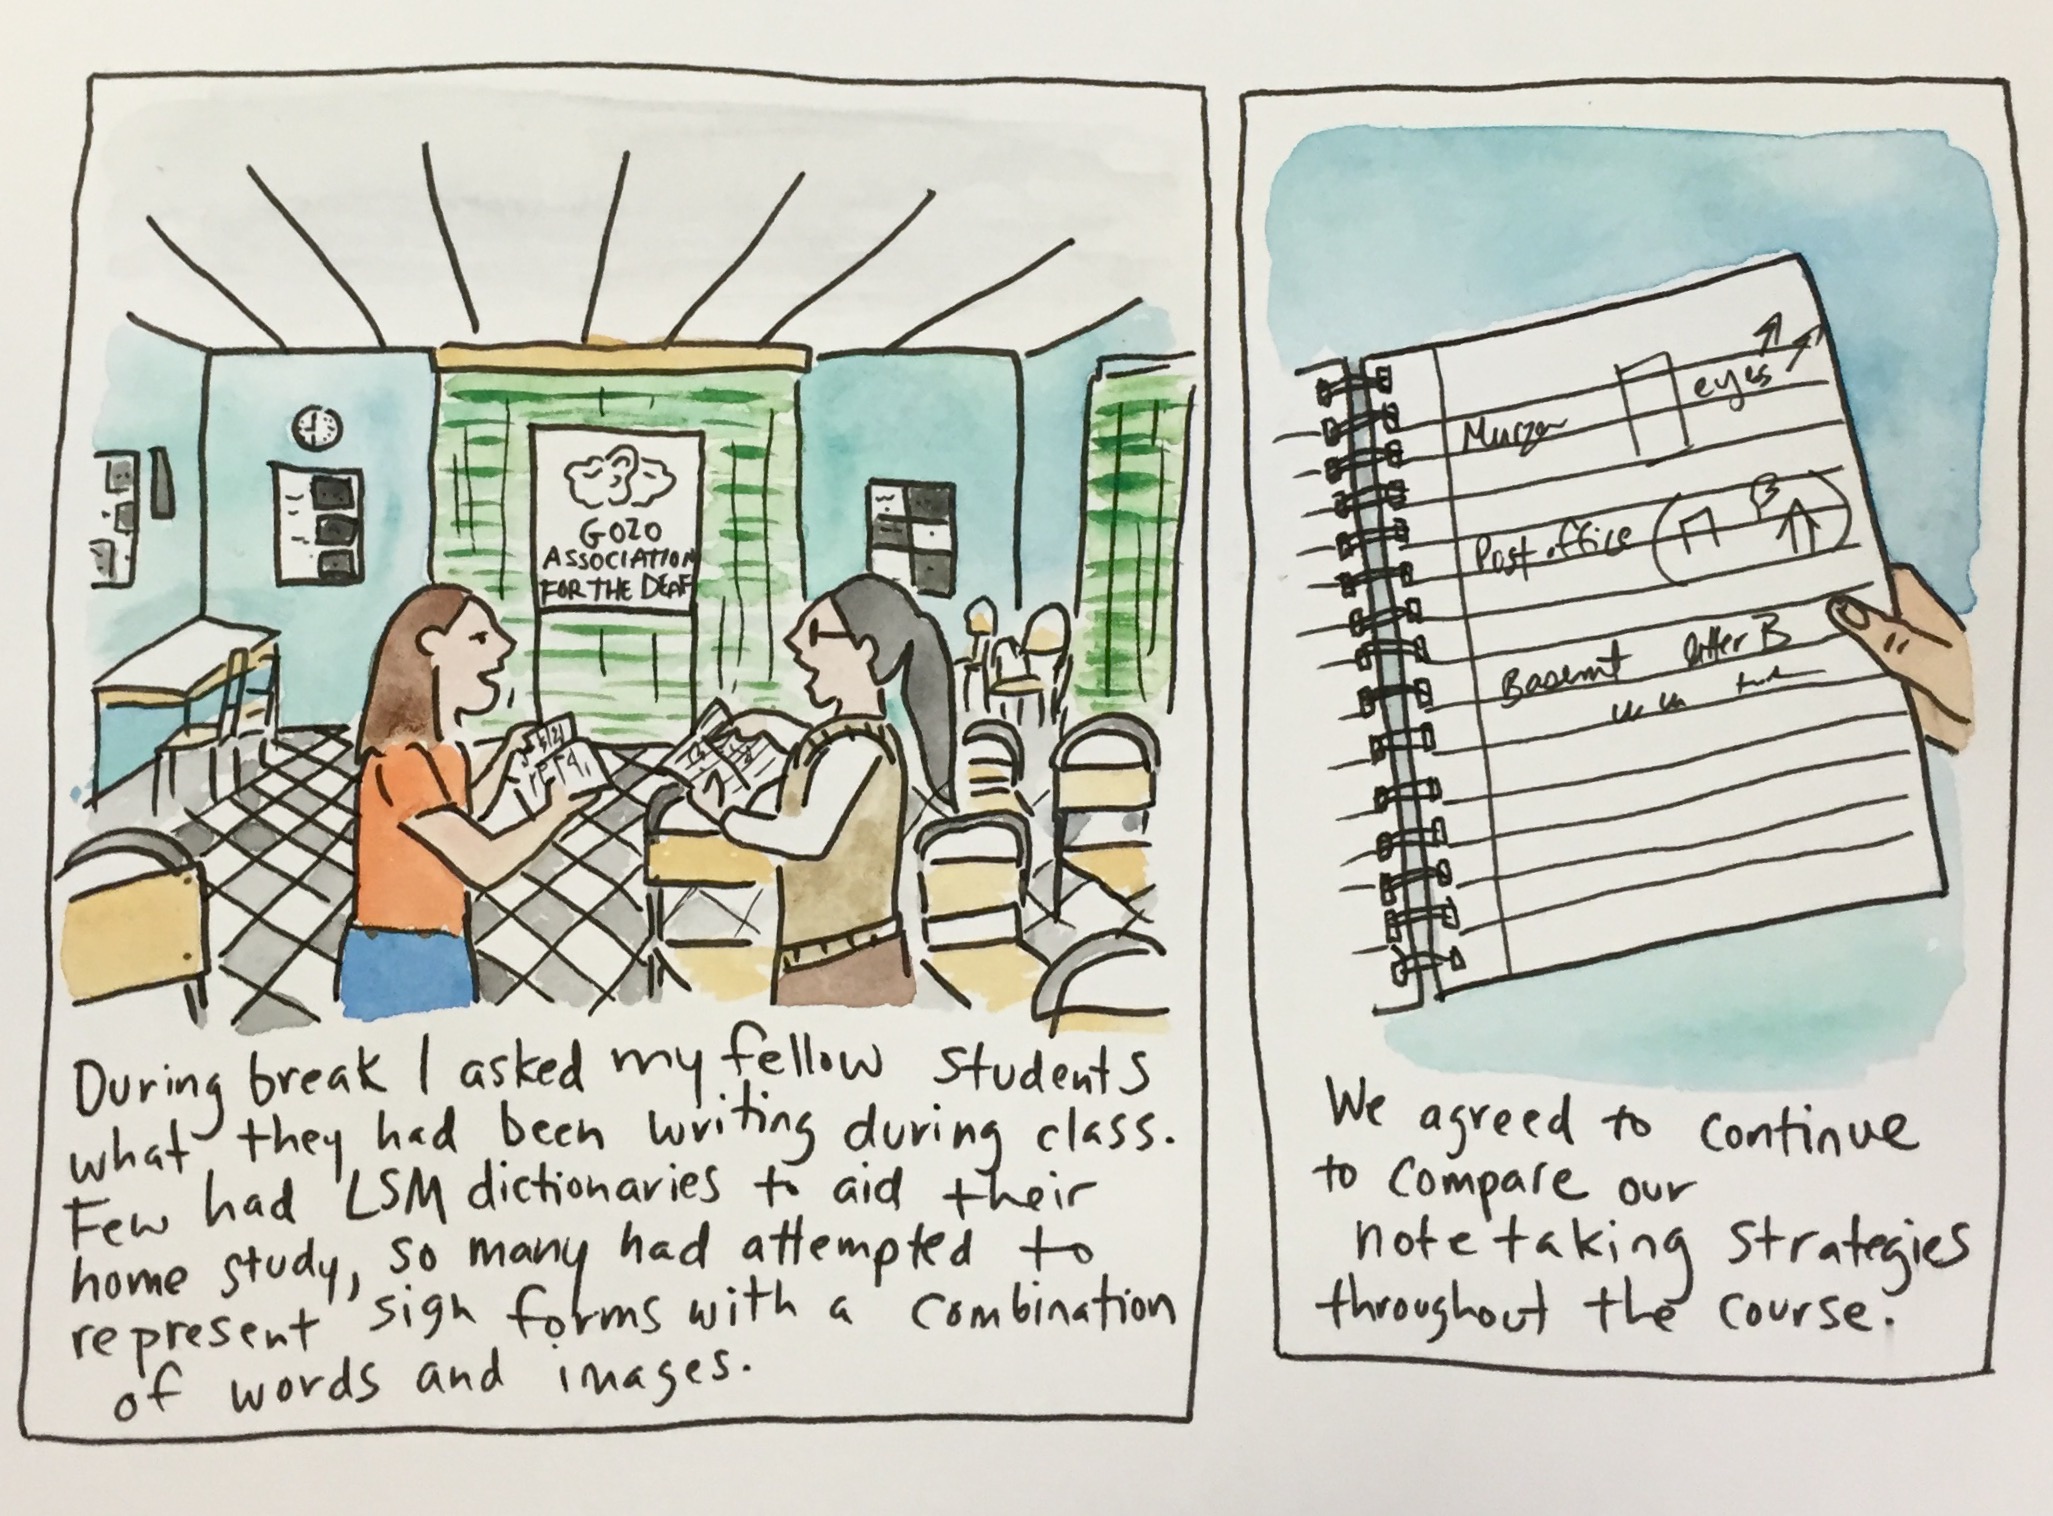 GOZO
ASSOCIATION
FOR THE DEAF
During break I asked my fellow students
what they had been writing during class.
Few had LSM dictionaries to aid their
home study, so many had attempted to
represent sign forms with a combination
of words and images.
eyes
Post office ( B )
Basemnt letter B
We agreed to continue
to compare our
note taking strategies
throughout the course.